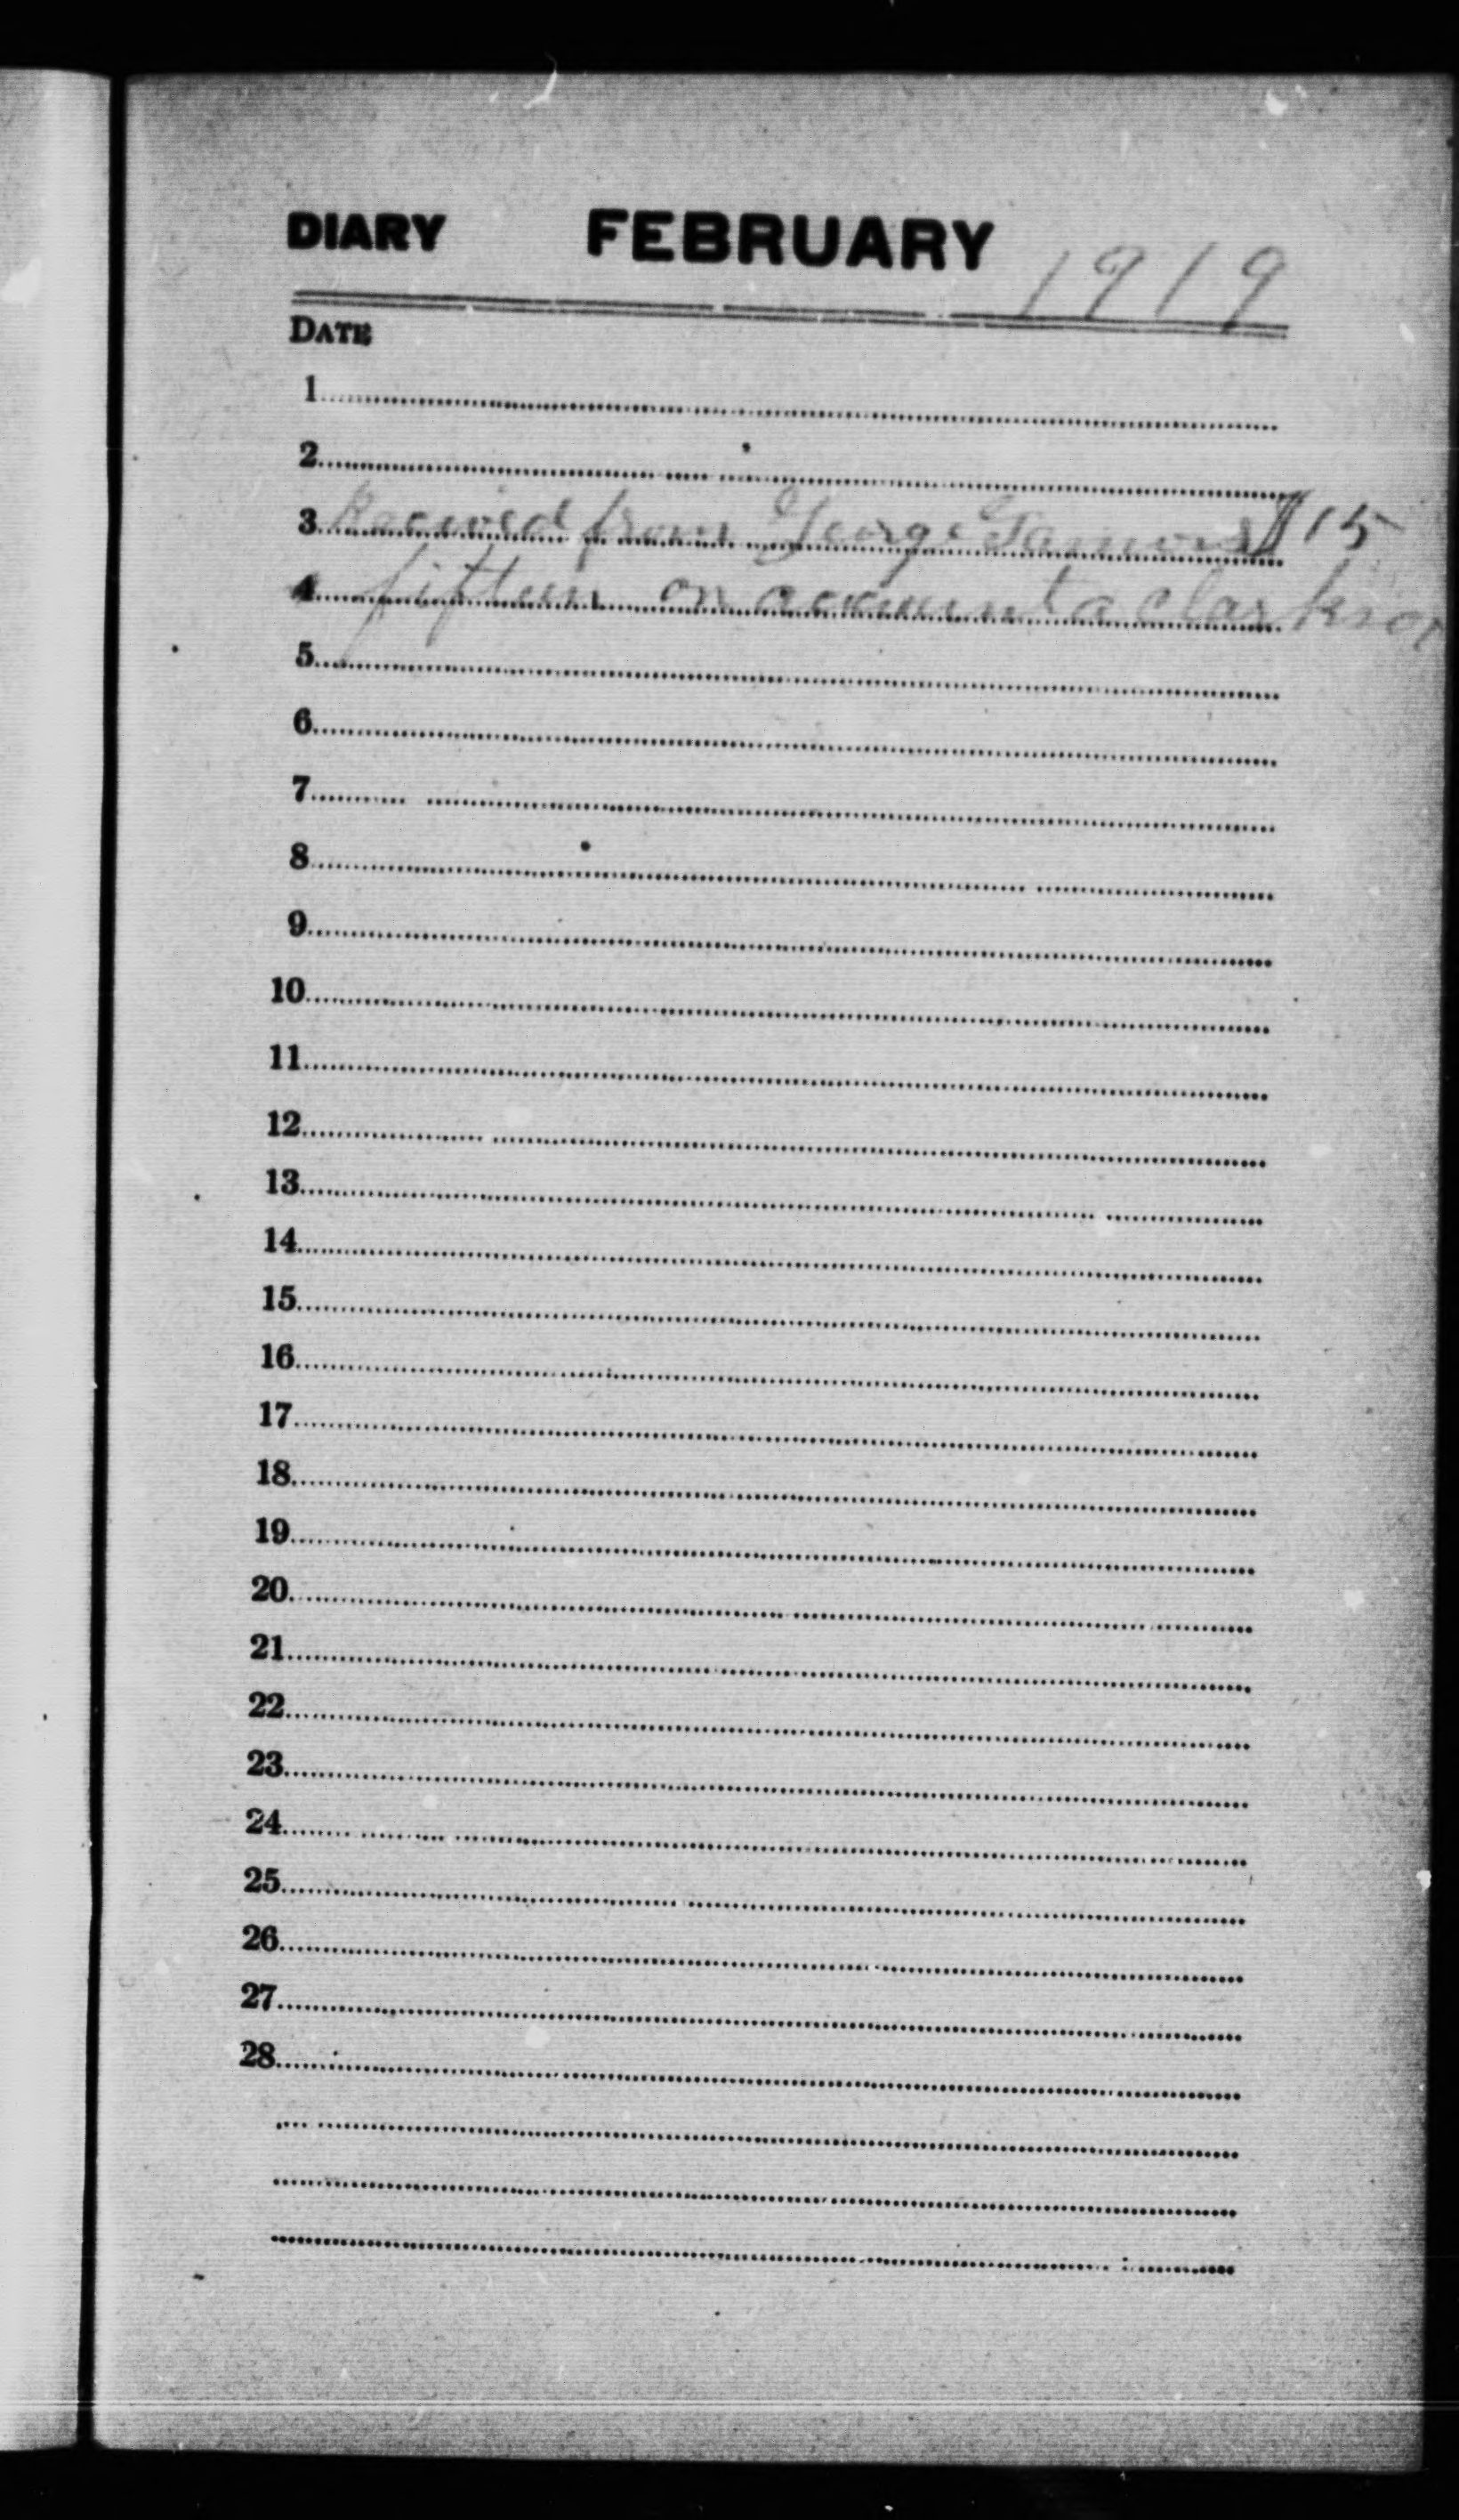 DIARY FEBRUARY 1919
DATE
1
2
3 Received from George $15
4 fifteen on account a clarkson
5
6
7
8
9
10
11
12
13
14
15
16
17
18
19
20
21
22
23
24
25
26
27
28